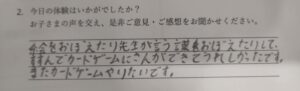 2. 今日の体験はいかがでしたか？
お子さまの声を交え、是非ご意見・ご感想をお聞かせください。
絵をおぼえたり先生が言う言葉をおぼえたりして、
すすんでカードゲームにさんかができてうれしかったです。
またカードゲームやりたいです。